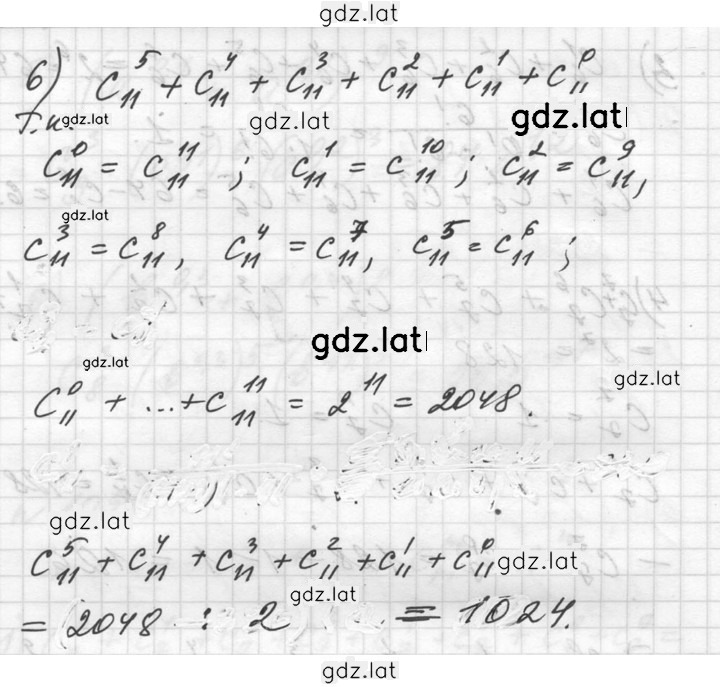 gdz.lat
6) C₁₁⁵ + C₁₁⁴ + C₁₁³ + C₁₁² + C₁₁¹ + C₁₁⁰
gdz.lat gdz.lat gdz.lat
Т.к.
C₁₁⁰ = C₁₁¹¹ ; C₁₁¹ = C₁₁¹⁰ ; C₁₁² = C₁₁⁹,
gdz.lat
C₁₁³ = C₁₁⁸, C₁₁⁴ = C₁₁⁷, C₁₁⁵ = C₁₁⁶ ;
gdz.lat
gdz.lat gdz.lat
C₁₁⁰ + ... + C₁₁¹¹ = 2¹¹ = 2048.
gdz.lat
C₁₁⁵ + C₁₁⁴ + C₁₁³ + C₁₁² + C₁₁¹ + C₁₁⁰ gdz.lat
gdz.lat
= 2048 : 2 = 1024.
gdz.lat